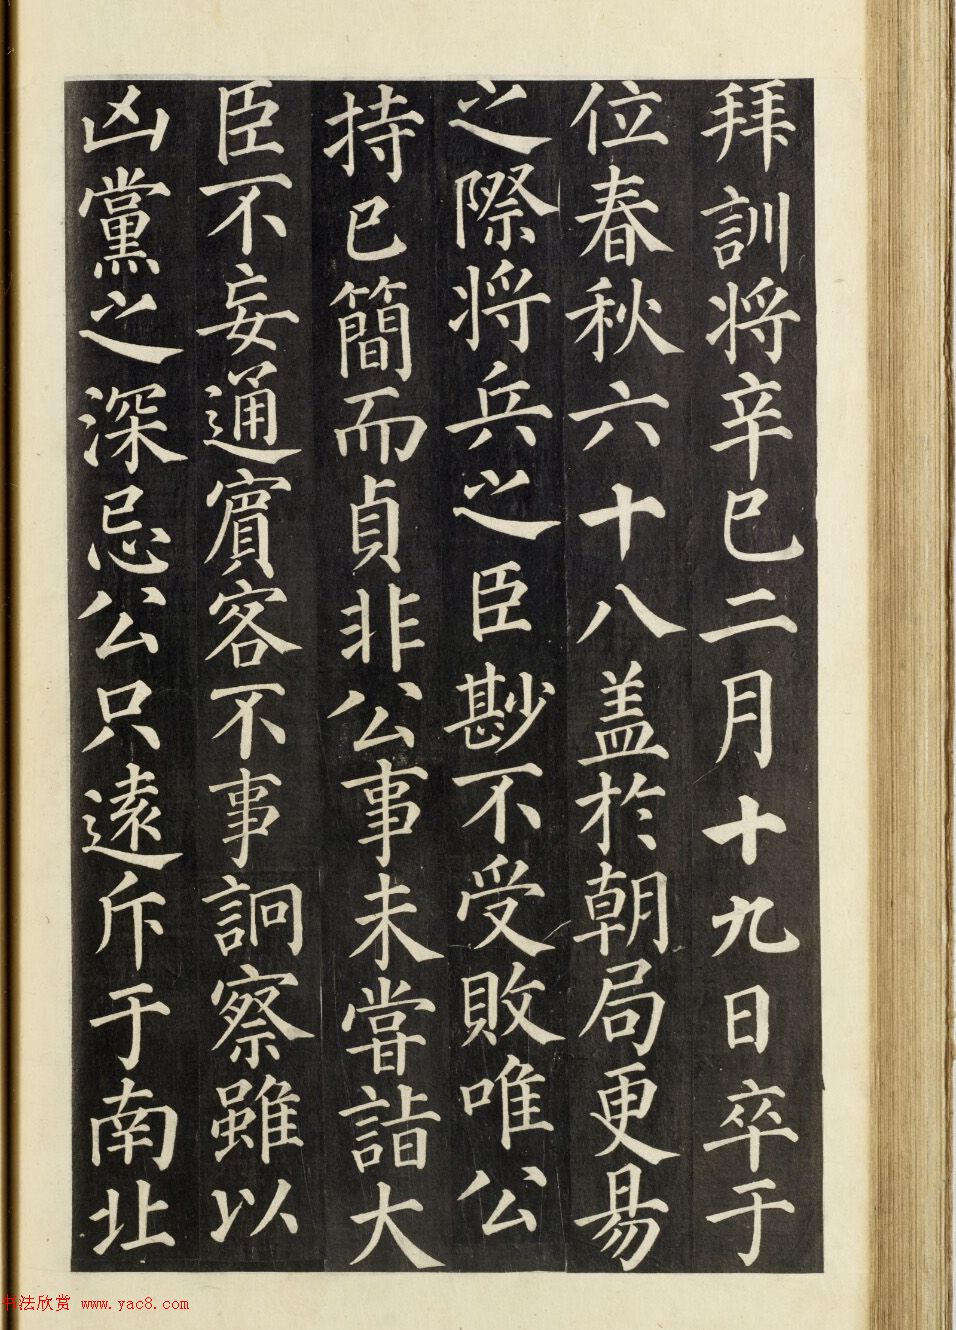 拜訓將辛巳二月十九日卒于
位春秋六十八盖於朝局更易
之際將兵之臣尠不受敗唯公
持已簡而貞非公事未甞詣大
臣不妄通賓客不事詗察雖以
凶黨之深忌公只遠斥于南北
书法欣赏 www.yac8.com